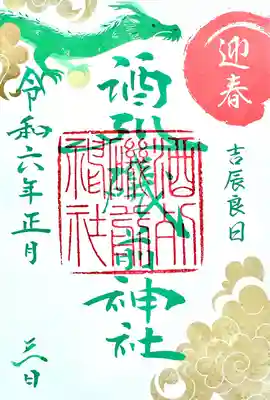 迎春
吉辰良日
酒列磯前神社
酒列
磯前
神社
令和六年正月
三日